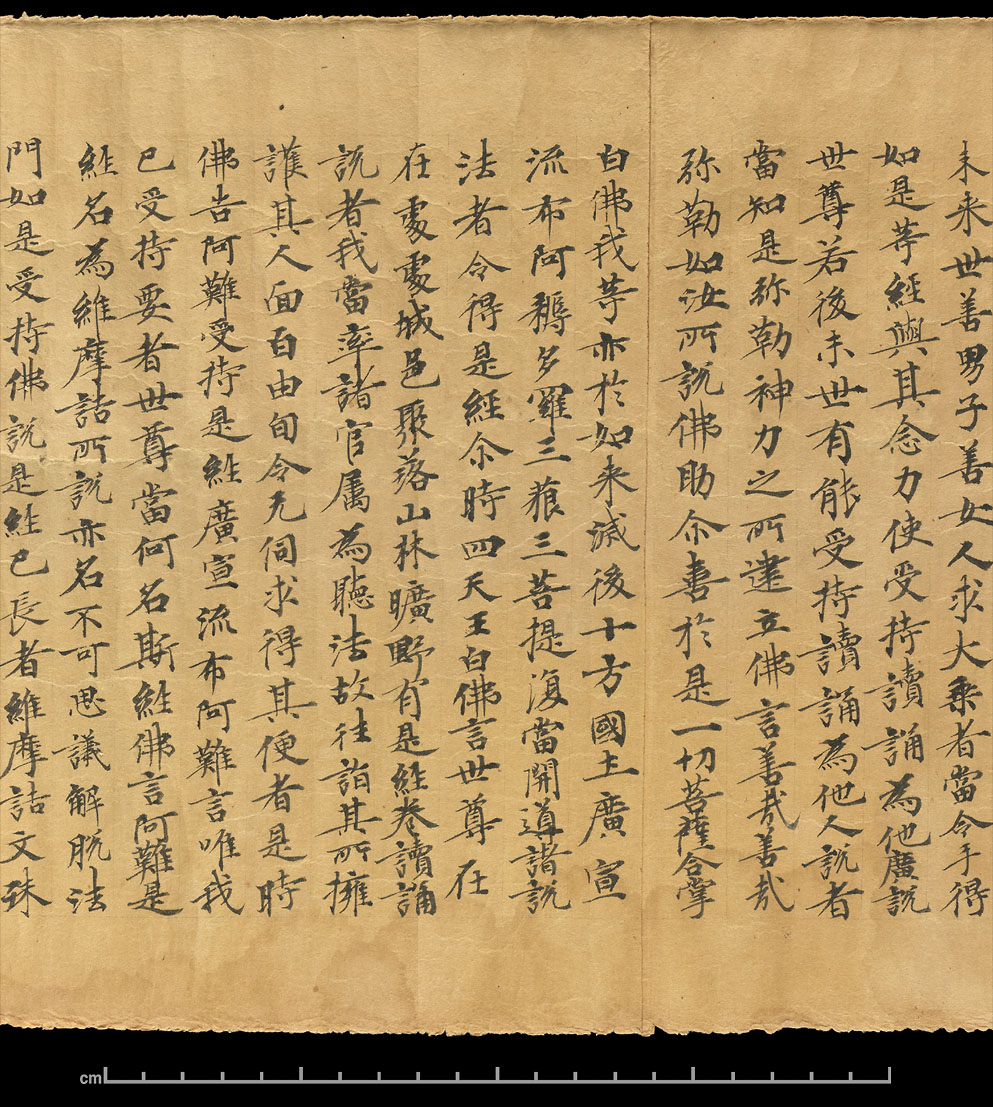 未来世善男子善女人求大乗者當令手得
如是等經與其念力使受持讀誦為他廣說
世尊若後末世有能受持讀誦為他人說者
當知是弥勒神力之所建立佛言善哉善哉
弥勒如汝所說佛助尒喜於是一切菩薩合掌
白佛我等亦於如来滅後十方國土廣宣
流布阿耨多羅三藐三菩提復當開導諸說
法者令得是經尒時四天王白佛言世尊在
在處處城邑聚落山林曠野有是經卷讀誦
說者我當率諸官屬為聽法故往詣其所擁
護其人面百由旬令无伺求得其便者是時
佛告阿難受持是經廣宣流布阿難言唯我
已受持要者世尊當何名斯經佛言阿難是
經名為維摩詰所說亦名不可思議解脫法
門如是受持佛說是經已長者維摩詰文殊
cm